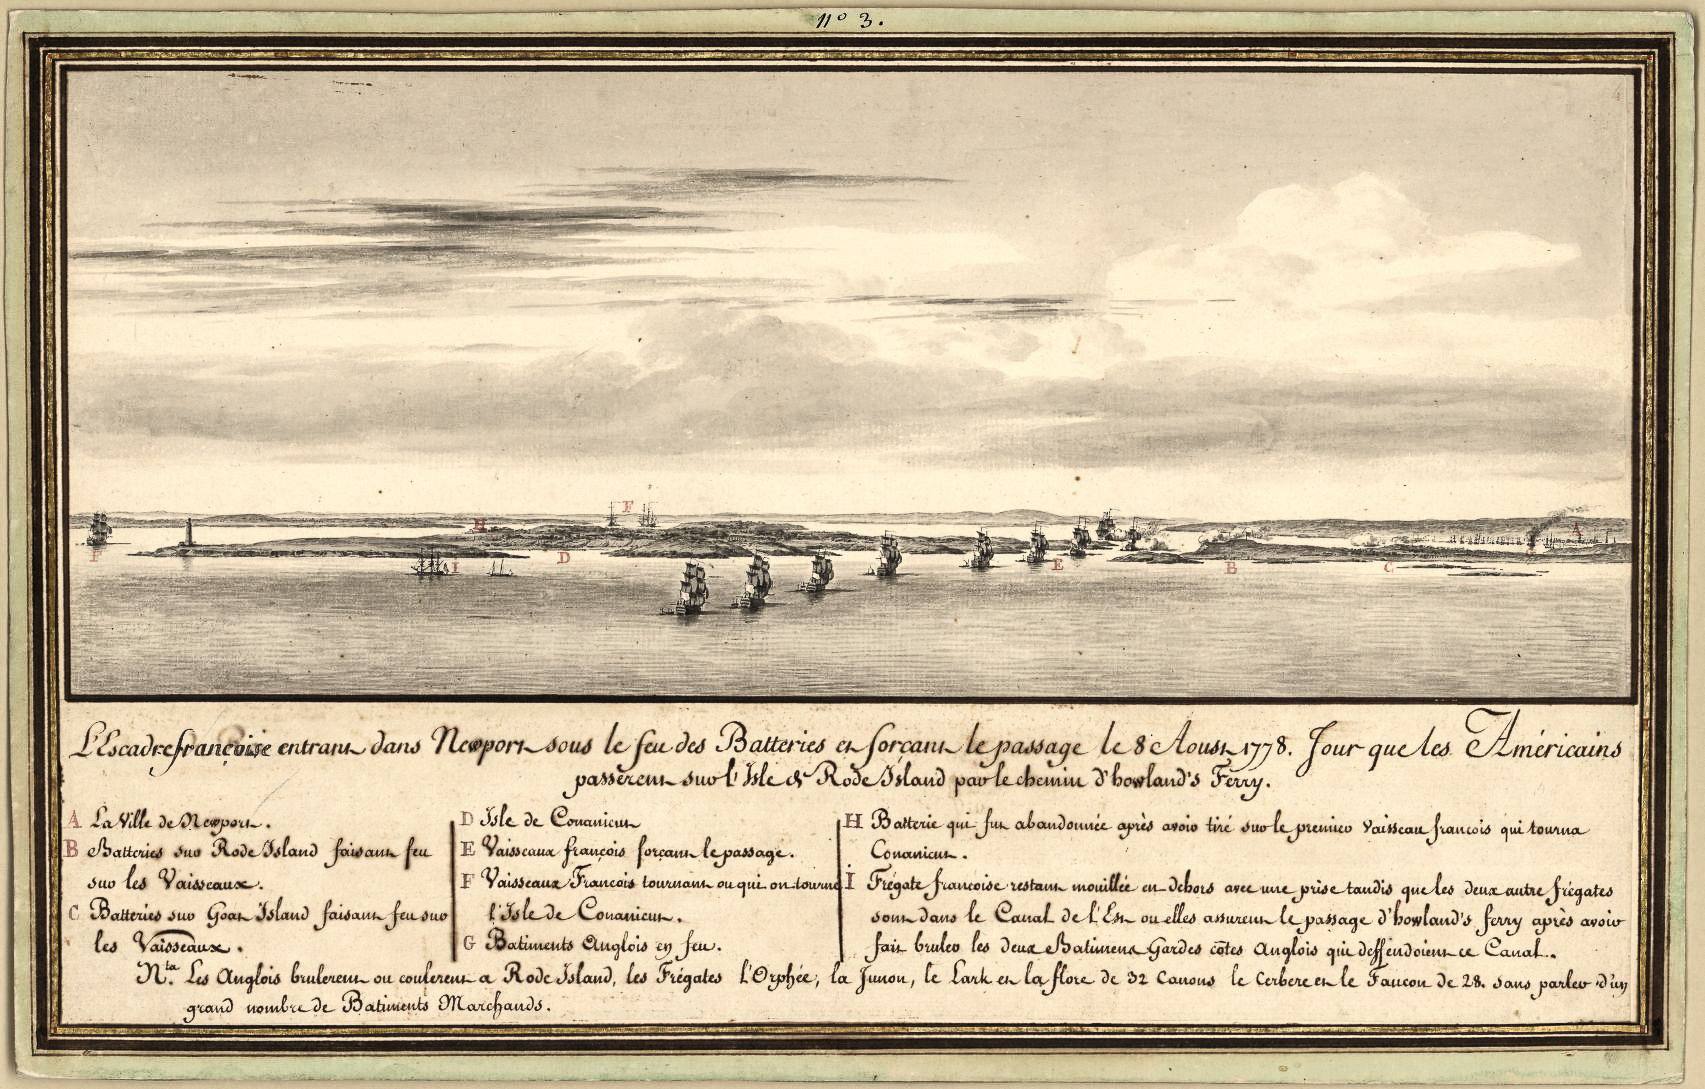 nº 3.
F
H
I
D
F
E
B
C
G
A
L'Escadre françoise entrant dans Newport sous le feu des Batteries et forçant le passage le 8 Aoust 1778. Jour que les Américains
passerent sur l'Isle de Rode Island par le chemin d'howland's Ferry.
A La Ville de Newport.
B Batteries sur Rode Island faisant feu
sur les Vaisseaux.
C Batteries sur Goat Island faisant feu sur
les Vaisseaux.
D Isle de Conanicut
E Vaisseaux françois forçant le passage.
F Vaisseaux François tournant ou qui ont tourné
l'Isle de Conanicut.
G Batiments Anglois en feu.
H Batterie qui fut abandonnée après avoir tiré sur le premier Vaisseau francois qui tourna
Conanicut.
I Frégate francoise restant mouillée en dehors avec une prise tandis que les deux autre frégates
sont dans le Canal de l'Est ou elles assurent le passage d'howland's ferry après avoir
fait bruler les deux Batimens Gardes côtes Anglois qui deffendoient ce Canal.
Nta. Les Anglois brulerent ou coulerent a Rode Island, les Frégates l'Orphée, la Junon, le Lark et la flore de 32 Canons le Cerbere et le Faucon de 28. sans parler d'un
grand nombre de Batiments Marchands.